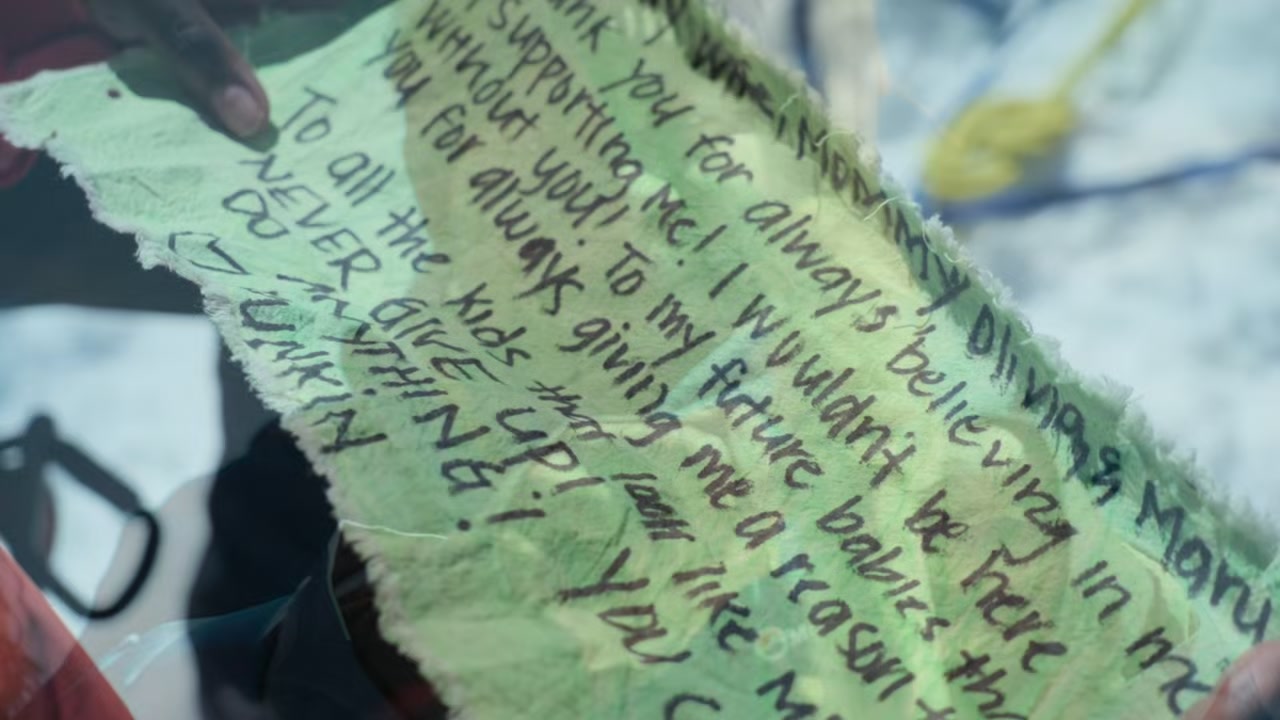 my Mary
ank you for always believing in me
supporting me! I wouldn't be here
without you! To my future babies
you for always giving me a reason
To all the kids that look like me
NEVER GIVE UP! YOU
DO ANYTHING!
UNKIN